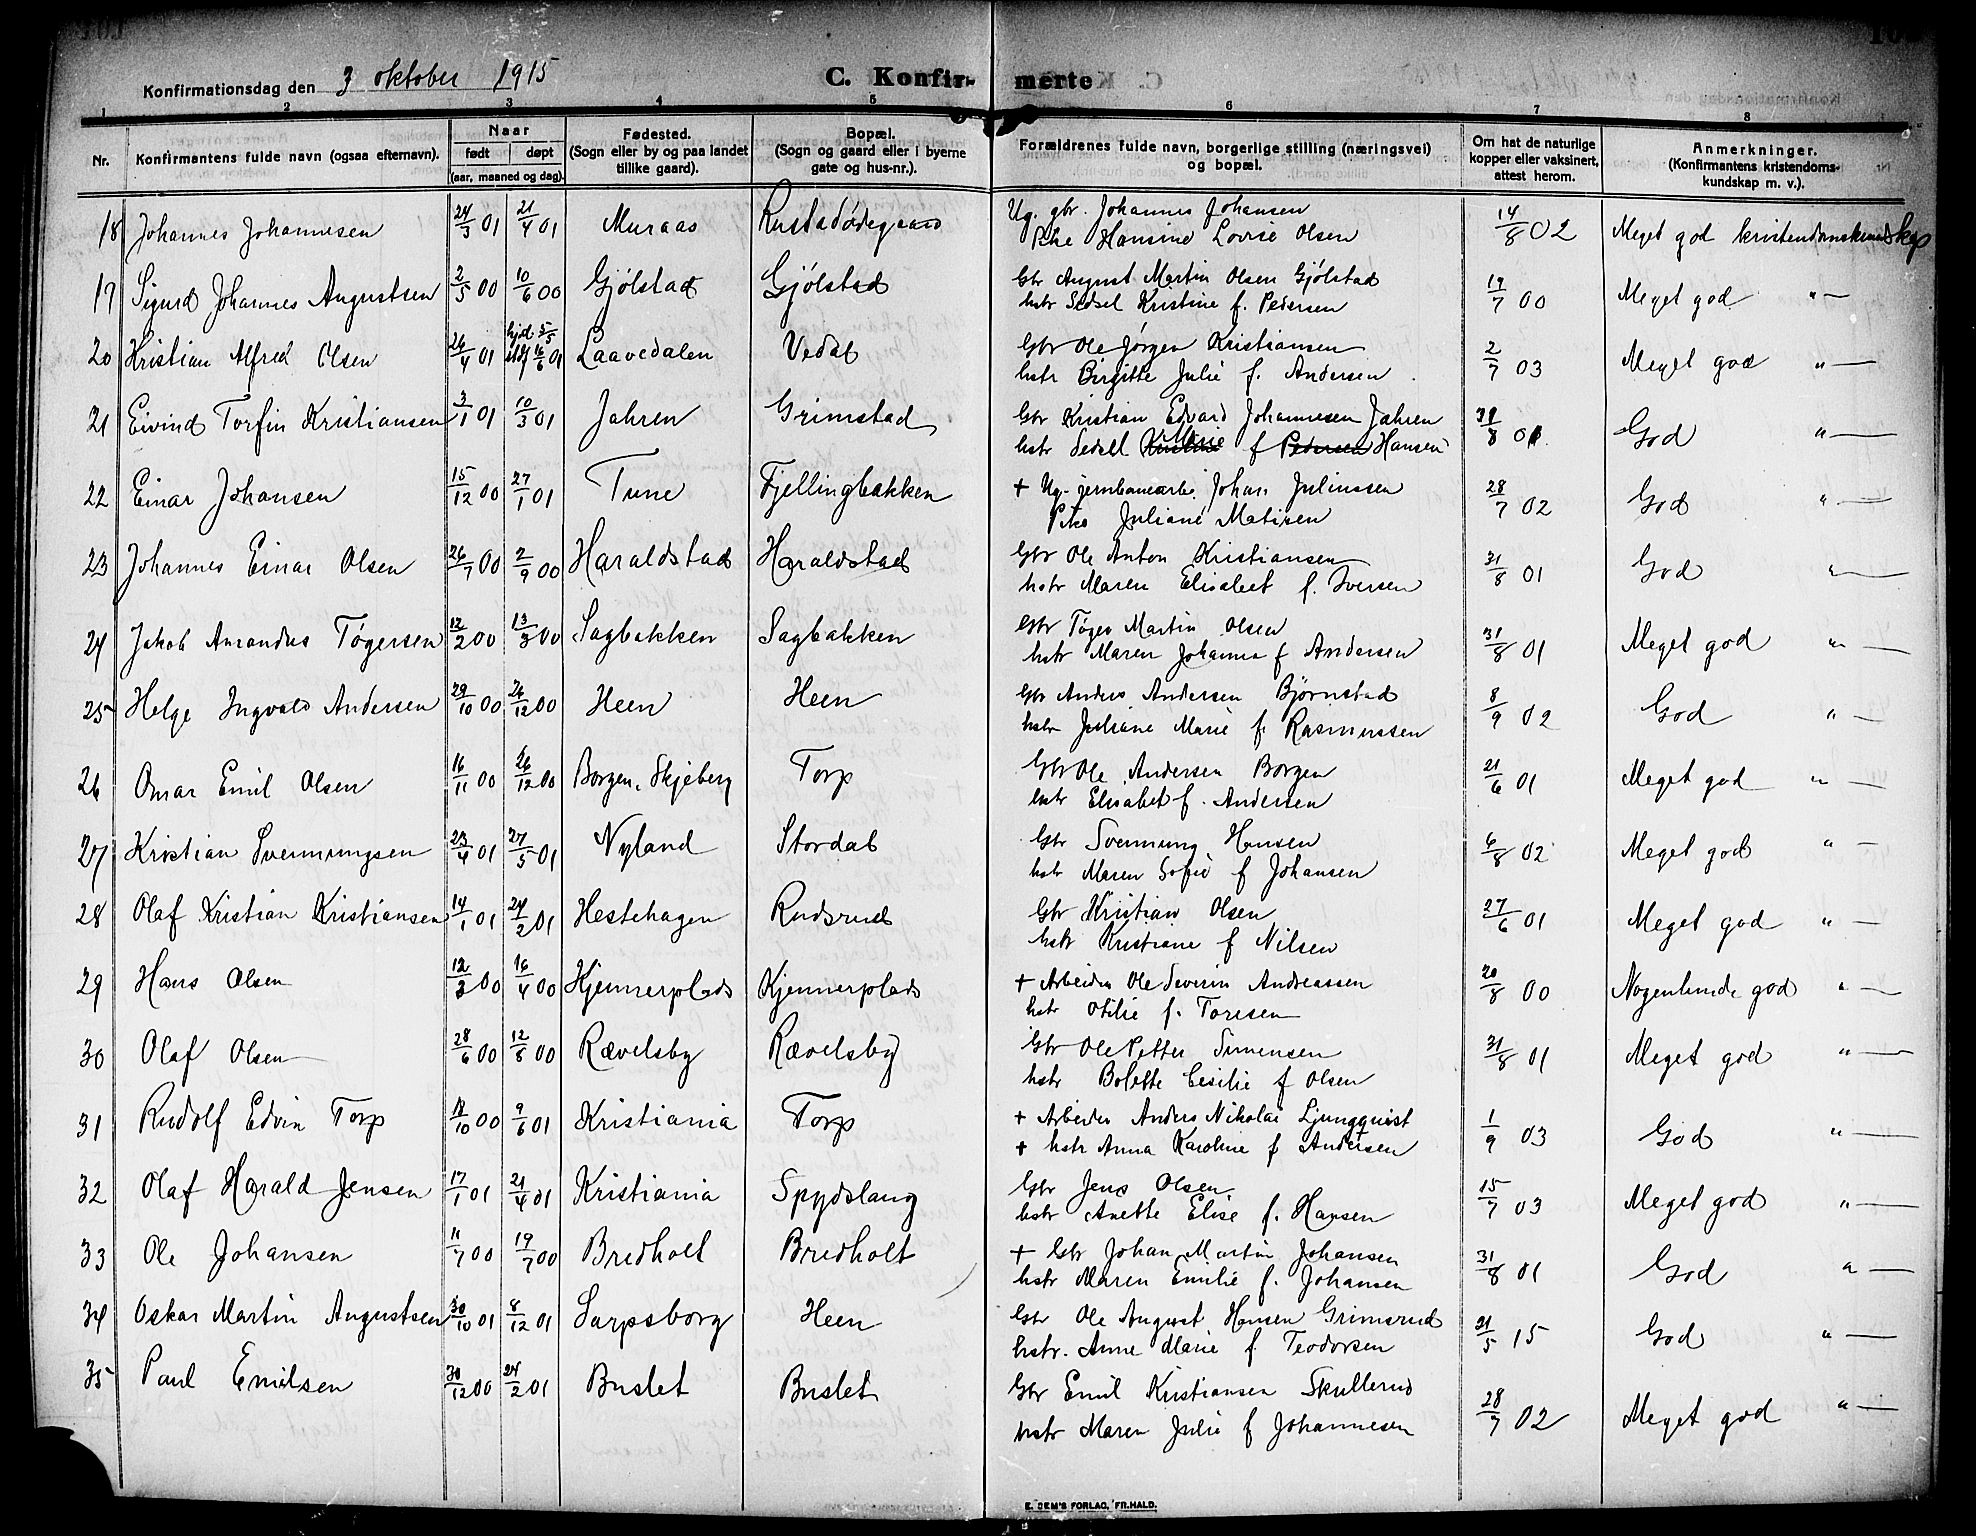 Konfirmationsdag den 3 oktober 1915
C. Konfir- merte
1 2 3 4 5 6 7 8
Nr. Konfirmantens fulde navn (ogsaa efternavn). Naar født døpt (aar, maaned og dag). Fødested. (Sogn eller by og paa landet tillike gaard). Bopæl. (Sogn og gaard eller i byerne gate og hus-nr.). Forældrenes fulde navn, borgerlige stilling (næringsvei) og bopæl. Om hat de naturlige kopper eller vaksinert, attest herom. Anmerkninger. (Konfirmantens kristendoms-kundskap m. v.).
18 Johannes Johannesen 24/3 01 21/4 01 Muraas Rustadødegaard Ug. gbr. Johannes Johansen 14/8 02 Meget god kristendomskundskap
Pike Hansine Lovise Olsen
19 Sigurd Johannes Augustsen 2/5 00 10/6 00 Gjølstad Gjølstad Gbr August Martin Olsen Gjølstad 19/7 00 Meget god " —
hstr Sedsel Kristine f. Pedersen
20 Kristian Alfred Olsen 26/4 01 hjd. 5/5 stdf 16/6 01 Laavedalen Vedal Gbr Ole Jørgen Kristiansen 2/7 03 Meget god " —
hstr Birgitte Julie f. Andersen
21 Eivind Torfin Kristiansen 3/1 01 10/3 01 Jahren Grimstad Gbr Kristian Edvard Johannesen Jahren 31/8 01 God " —
hstr Sedsel Kristine Marie f Pedersen Hansen
22 Einar Johansen 15/12 00 27/1 01 Tune Fjellingbakken + Ug. jernbanearb. Johan Juliussen 28/7 02 God " —
Pike Juliane Matisen
23 Johannes Einar Olsen 26/7 00 2/9 00 Haraldstad Haraldstad Gbr Ole Anton Kristiansen 31/8 01 God " —
hstr Maren Elisabet f. Iversen
24 Jakob Amandus Tøgersen 12/2 00 13/3 00 Sagbakken Sagbakken Gbr Tøger Martin Olsen 31/8 01 Meget god " —
hstr Maren Johanna f Andersen
25 Helge Ingvald Andersen 29/10 00 26/12 00 Heen Heen Gbr Anders Andersen Bjørnstad 8/9 02 God " —
hstr Juliane Marie f. Rasmussen
26 Omar Emil Olsen 16/11 00 26/12 00 Borgen, Skjeberg Torp Gbr Ole Andersen Borgen 21/6 01 Meget god " —
hstr Elisabet f. Andersen
27 Kristian Svenningsen 23/4 01 27/5 01 Nyland Stordal Gbr Svenning Hansen 6/8 02 Meget god " —
hstr Maren Sofie f Johansen
28 Olaf Kristian Kristiansen 14/1 01 24/2 01 Hestehagen Rudsrud Gbr Kristian Olsen 27/6 01 Meget god " —
hstr Kristiane f Nilsen
29 Hans Olsen 12/3 00 16/4 00 Kjennerplads Kjennerplads + Arbeider Ole Severin Andreassen 20/8 00 Nogenlunde god " —
hstr Otilie f. Toresen
30 Olaf Olsen 28/6 00 12/8 00 Rævelsby Rævelsby Gbr Ole Petter Simensen 31/8 01 Meget god " —
hstr Bolette Cesilie f Olsen
31 Rudolf Edvin Torp 18/10 00 9/6 01 Kristiania Torp + Arbeider Anders Nikolai Ljungquist 1/9 03 God " —
+ hstr Anna Karoline f Andersen
32 Olaf Harald Jensen 17/1 01 21/4 01 Kristiania Spydslaug Gbr Jens Olsen 15/7 03 Meget god " —
hstr Anette Elise f. Hansen
33 Ole Johansen 11/7 00 19/7 00 Bredholt Bredholt + Gbr Johan Martin Johansen 31/8 01 God " —
hstr Maren Emilie f. Johansen
34 Oskar Martin Augustsen 30/10 01 8/12 01 Sarpsborg Heen Gbr Ole August Hansen Grimsrud 21/5 15 God " —
hstr. Anne Marie f. Teodorsen
35 Paul Emilsen 30/12 00 24/2 01 Buslet Buslet Gbr Emil Kristiansen Skullerud 28/7 02 Meget god " —
hstr Maren Julie f Johannesen
E. SEM'S FORLAG, FR.HALD.